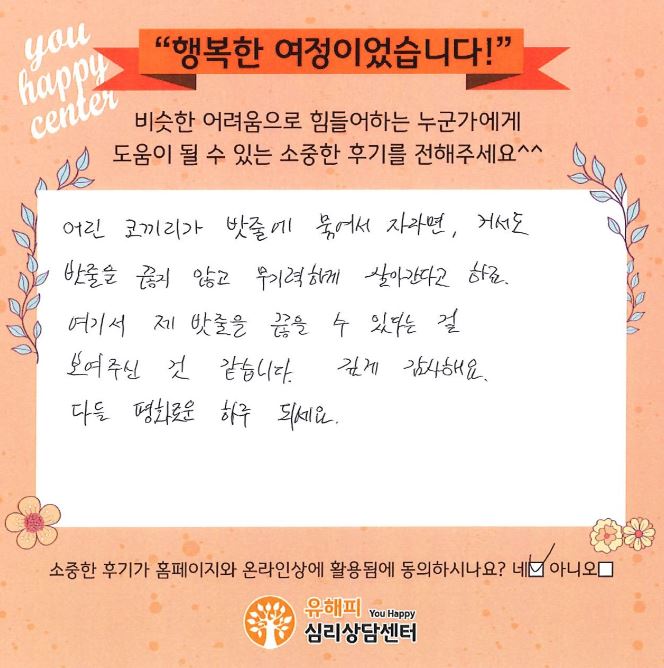 you
happy
center
“행복한 여정이었습니다!”
비슷한 어려움으로 힘들어하는 누군가에게
도움이 될 수 있는 소중한 후기를 전해주세요^^
어린 코끼리가 밧줄에 묶여서 자라면, 커서도
밧줄을 끊지 않고 무기력하게 살아간다고 하죠.
여기서 제 밧줄을 끊을 수 있다는 걸
보여주신 것 같습니다. 깊게 감사해요.
다들 평화로운 하루 되세요.
소중한 후기가 홈페이지와 온라인상에 활용됨에 동의하시나요? 네☑ 아니오☐
유해피 You Happy
심리상담센터